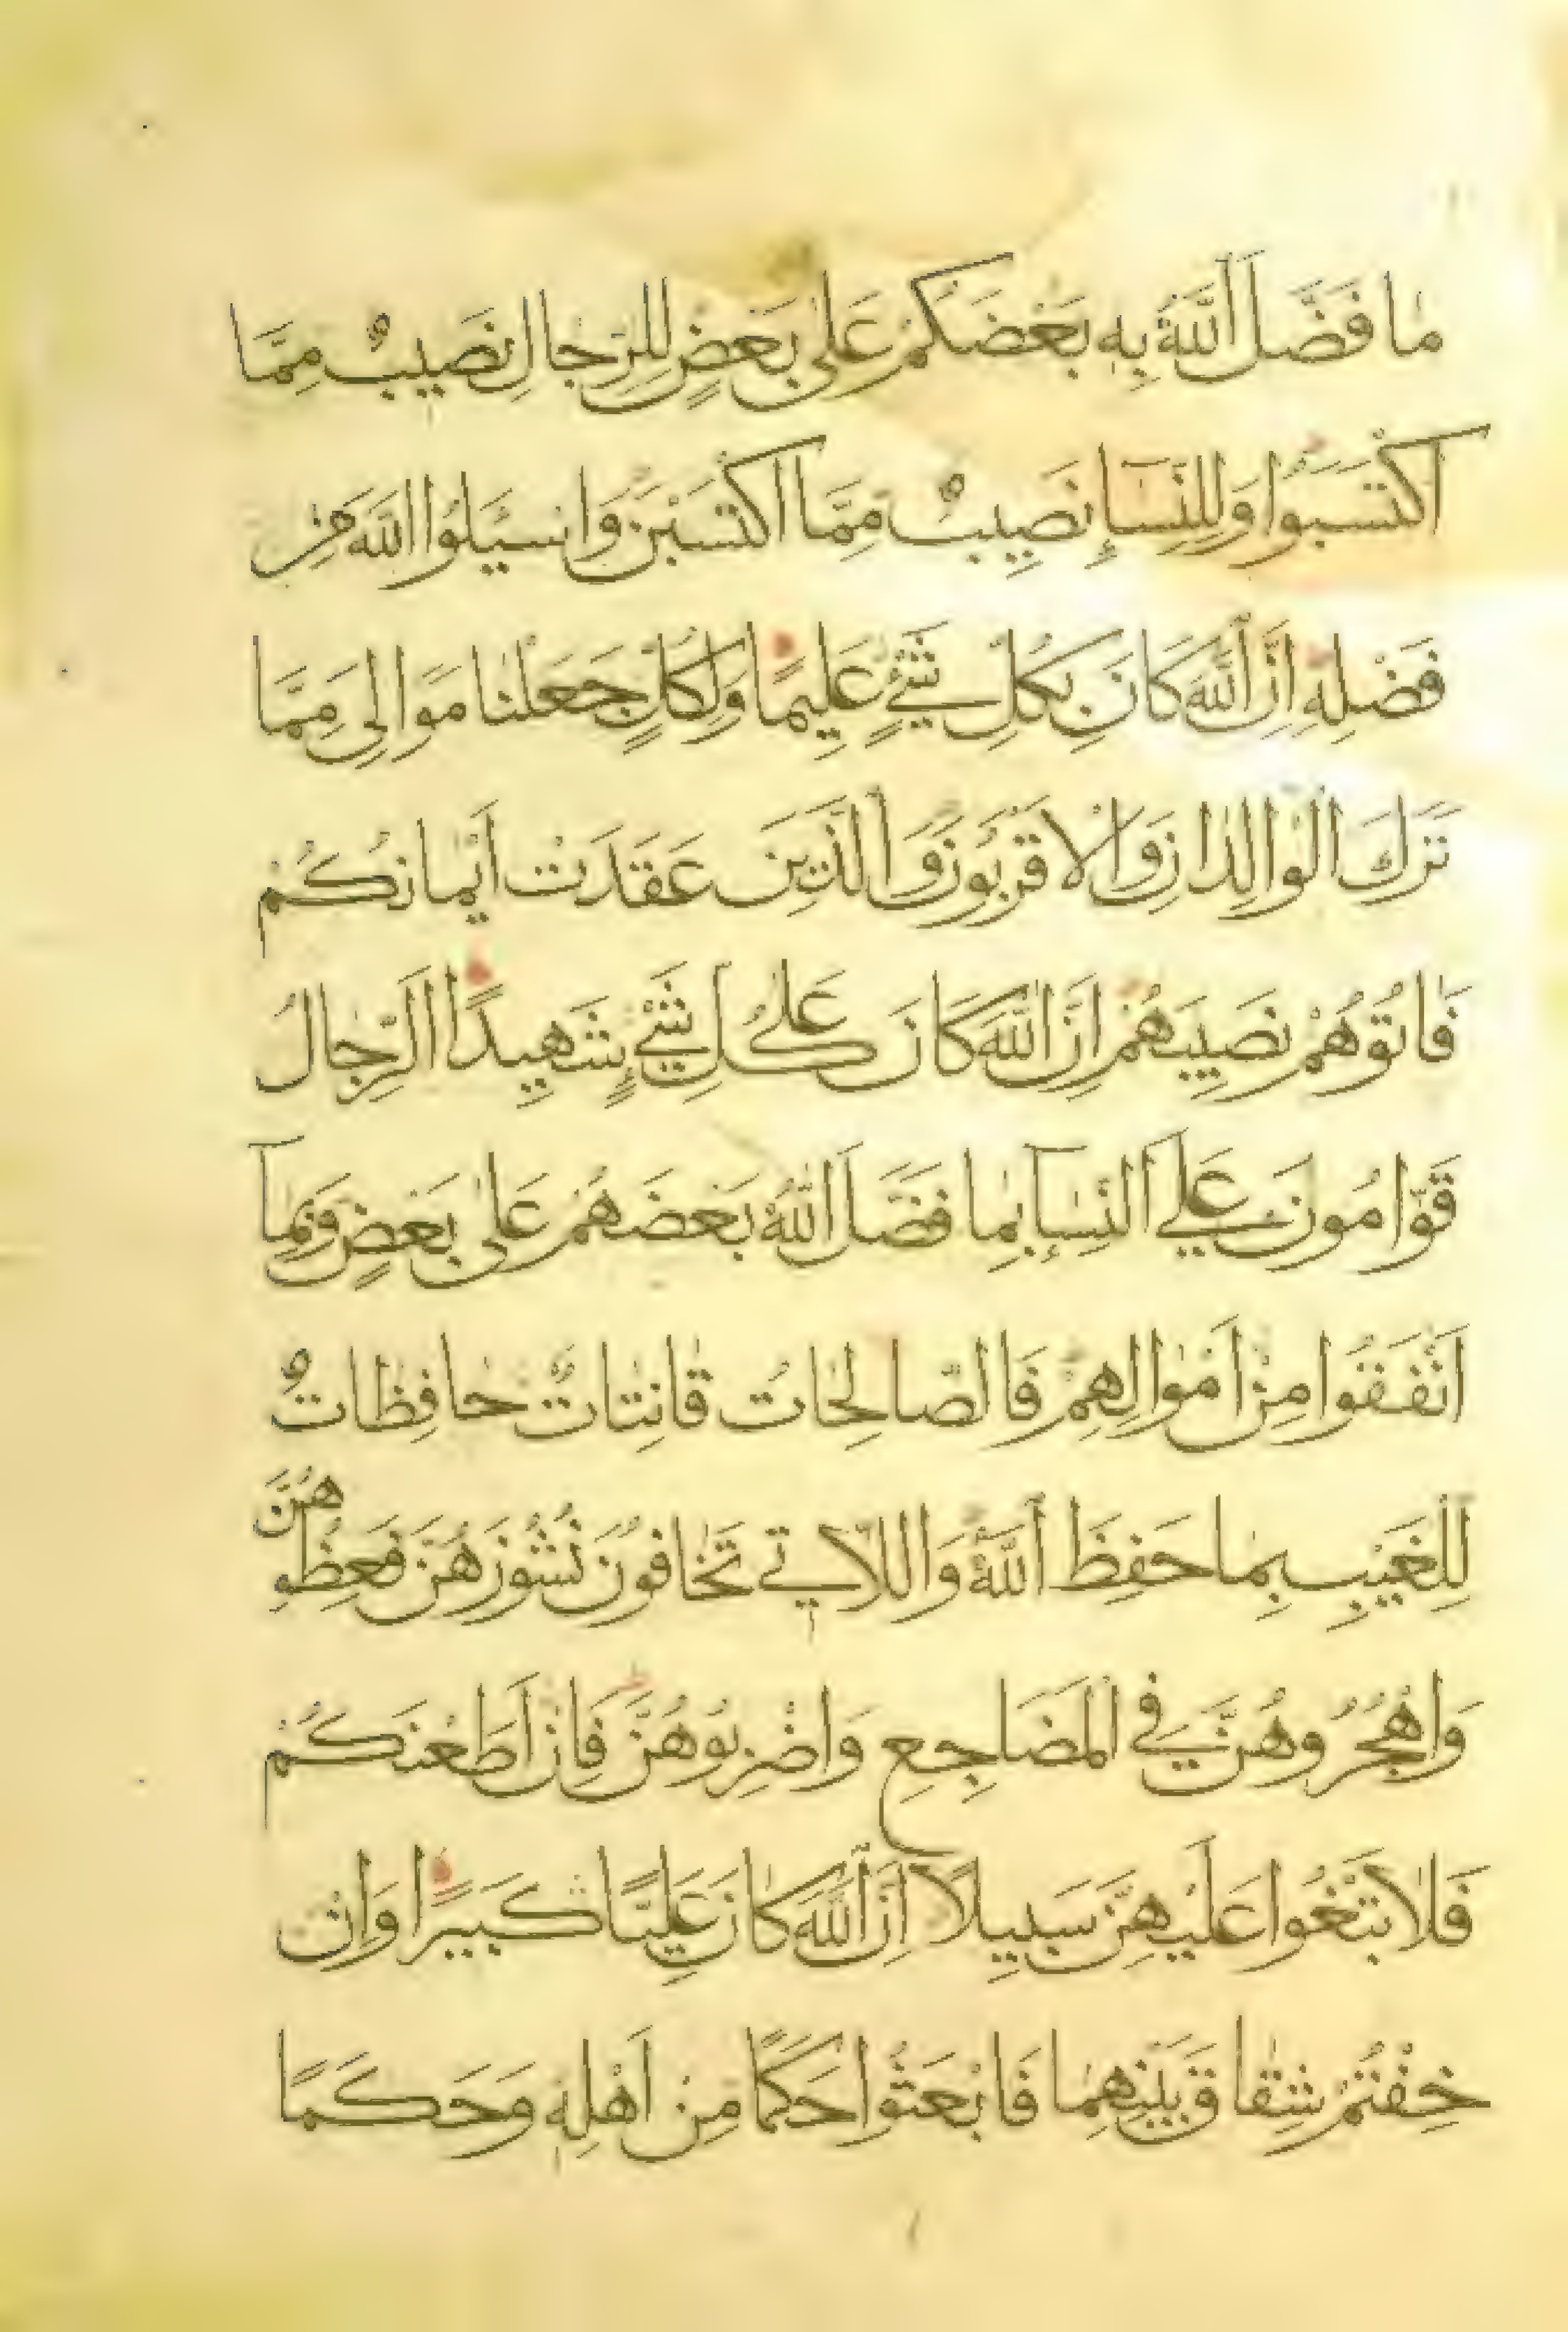 مٰا فَضَّلَ اللّٰهُ بِهٖ بَعْضَكُمْ عَلٰى بَعْضٍ لِلرِّجٰالِ نَصِيبٌ مِمَّا
اكْتَسَبُوا وَلِلنِّسَآءِ نَصِيبٌ مِمَّا اكْتَسَبْنَ وَاسْئَلُوا اللّٰهَ مِنْ
فَضْلِهٖ اِنَّ اللّٰهَ كَانَ بِكُلِّ شَیْءٍ عَلِيمًا وَلِكُلٍّ جَعَلْنٰا مَوَالِیَ مِمَّا
تَرَكَ الْوٰالِدٰانِ وَالْاَقْرَبُونَ وَالَّذِينَ عَقَدَتْ اَيْمٰانُكُمْ
فَاٰتُوهُمْ نَصِيبَهُمْ اِنَّ اللّٰهَ كَانَ عَلٰى كُلِّ شَیْءٍ شَهِيدًا اَلرِّجٰالُ
قَوّٰامُونَ عَلَى النِّسَآءِ بِمٰا فَضَّلَ اللّٰهُ بَعْضَهُمْ عَلٰى بَعْضٍ وَبِمَآ
اَنْفَقُوا مِنْ اَمْوٰالِهِمْ فَالصَّالِحٰاتُ قٰانِتٰاتٌ حٰافِظٰاتٌ
لِلْغَيْبِ بِمٰا حَفِظَ اللّٰهُ وَاللّاٰتِي تَخٰافُونَ نُشُوزَهُنَّ فَعِظُوهُنَّ
وَاهْجُرُوهُنَّ فِي الْمَضَاجِعِ وَاضْرِبُوهُنَّ فَاِنْ اَطَعْنَكُمْ
فَلٰا تَبْغُوا عَلَيْهِنَّ سَبِيلًا اِنَّ اللّٰهَ كٰانَ عَلِيًّا كَبِيرًا وَاِنْ
خِفْتُمْ شِقٰاقَ بَيْنِهِمٰا فَابْعَثُوا حَكَمًا مِنْ اَهْلِهٖ وَحَكَمًا